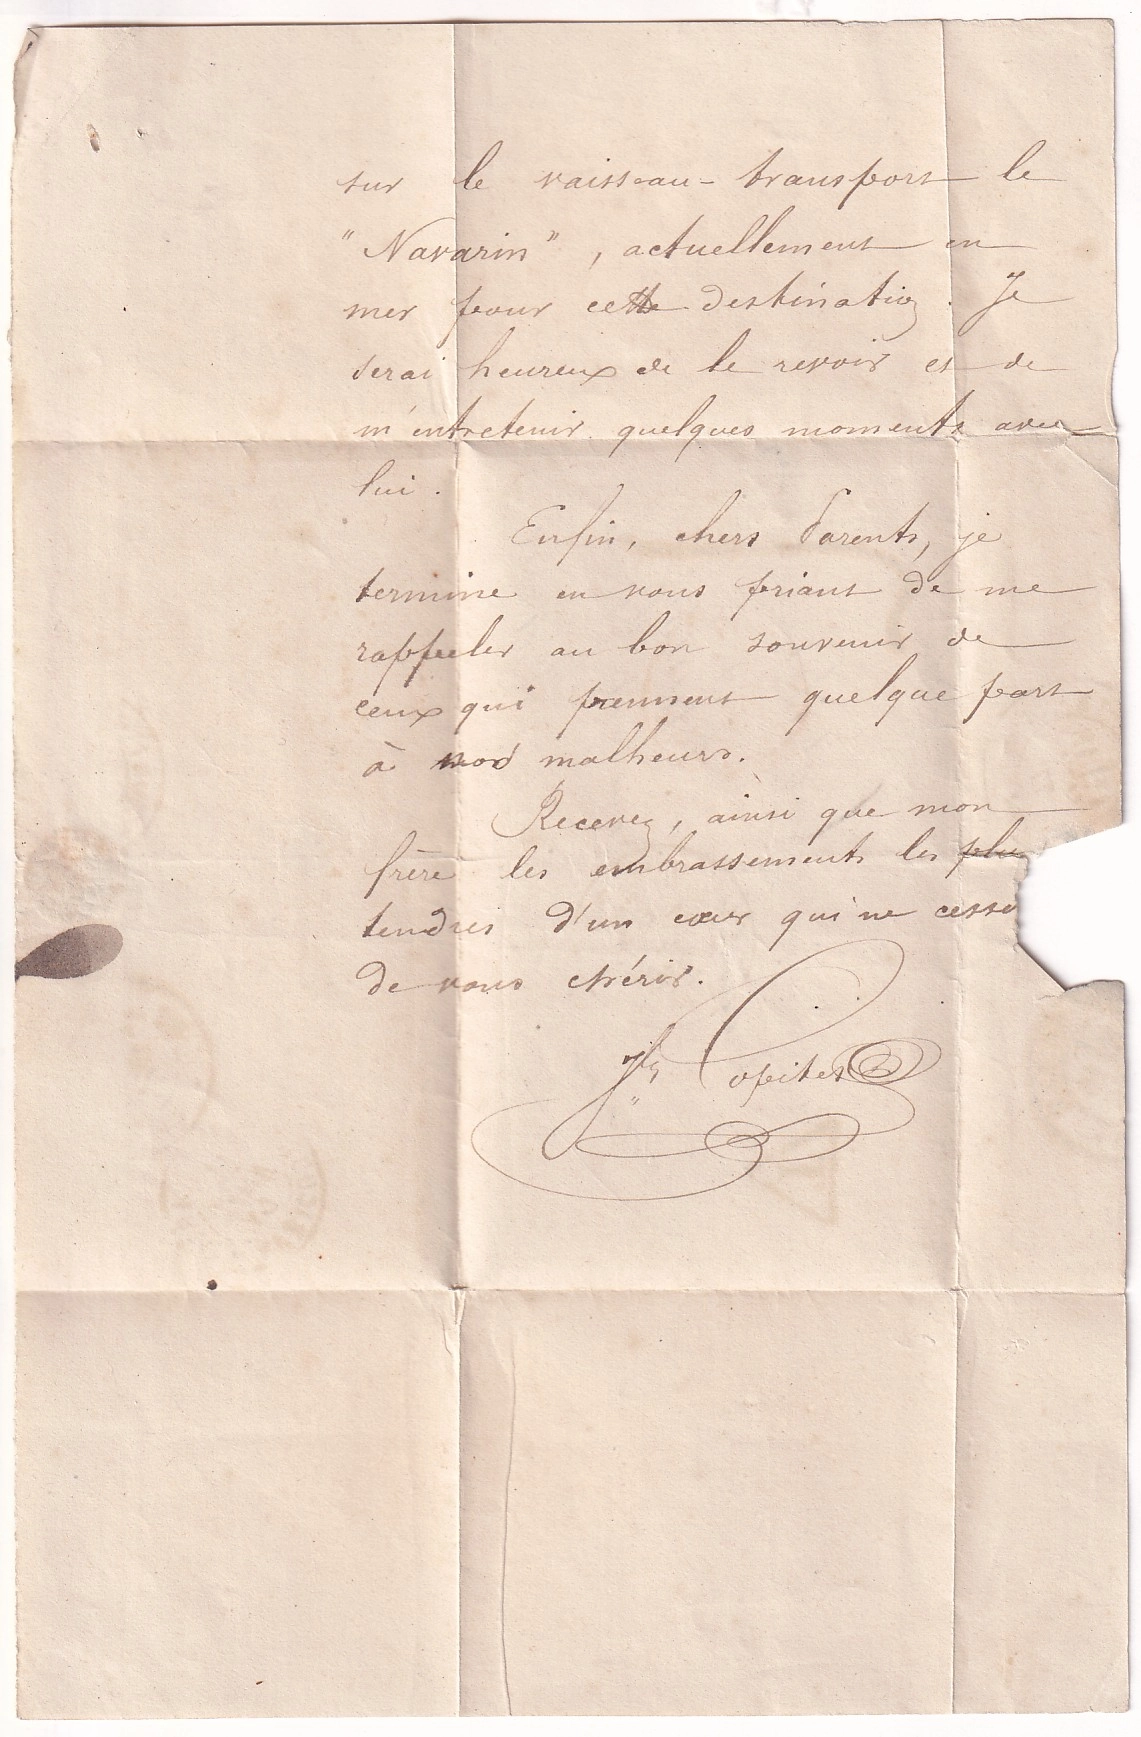 sur le vaisseau-transport le
"Navarin", actuellement en
mer pour cette destination. Je
serai heureux de le revoir et de
m'entretenir quelques moments avec
lui.
Enfin, chers Parents, je
termine en vous priant de me
rappeler au bon souvenir de
ceux qui prennent quelque part
à nos malheurs.
Recevez, ainsi que mon
frère les embrassements les plus
tendres d'un cœur qui ne cesse
de vous chérir.